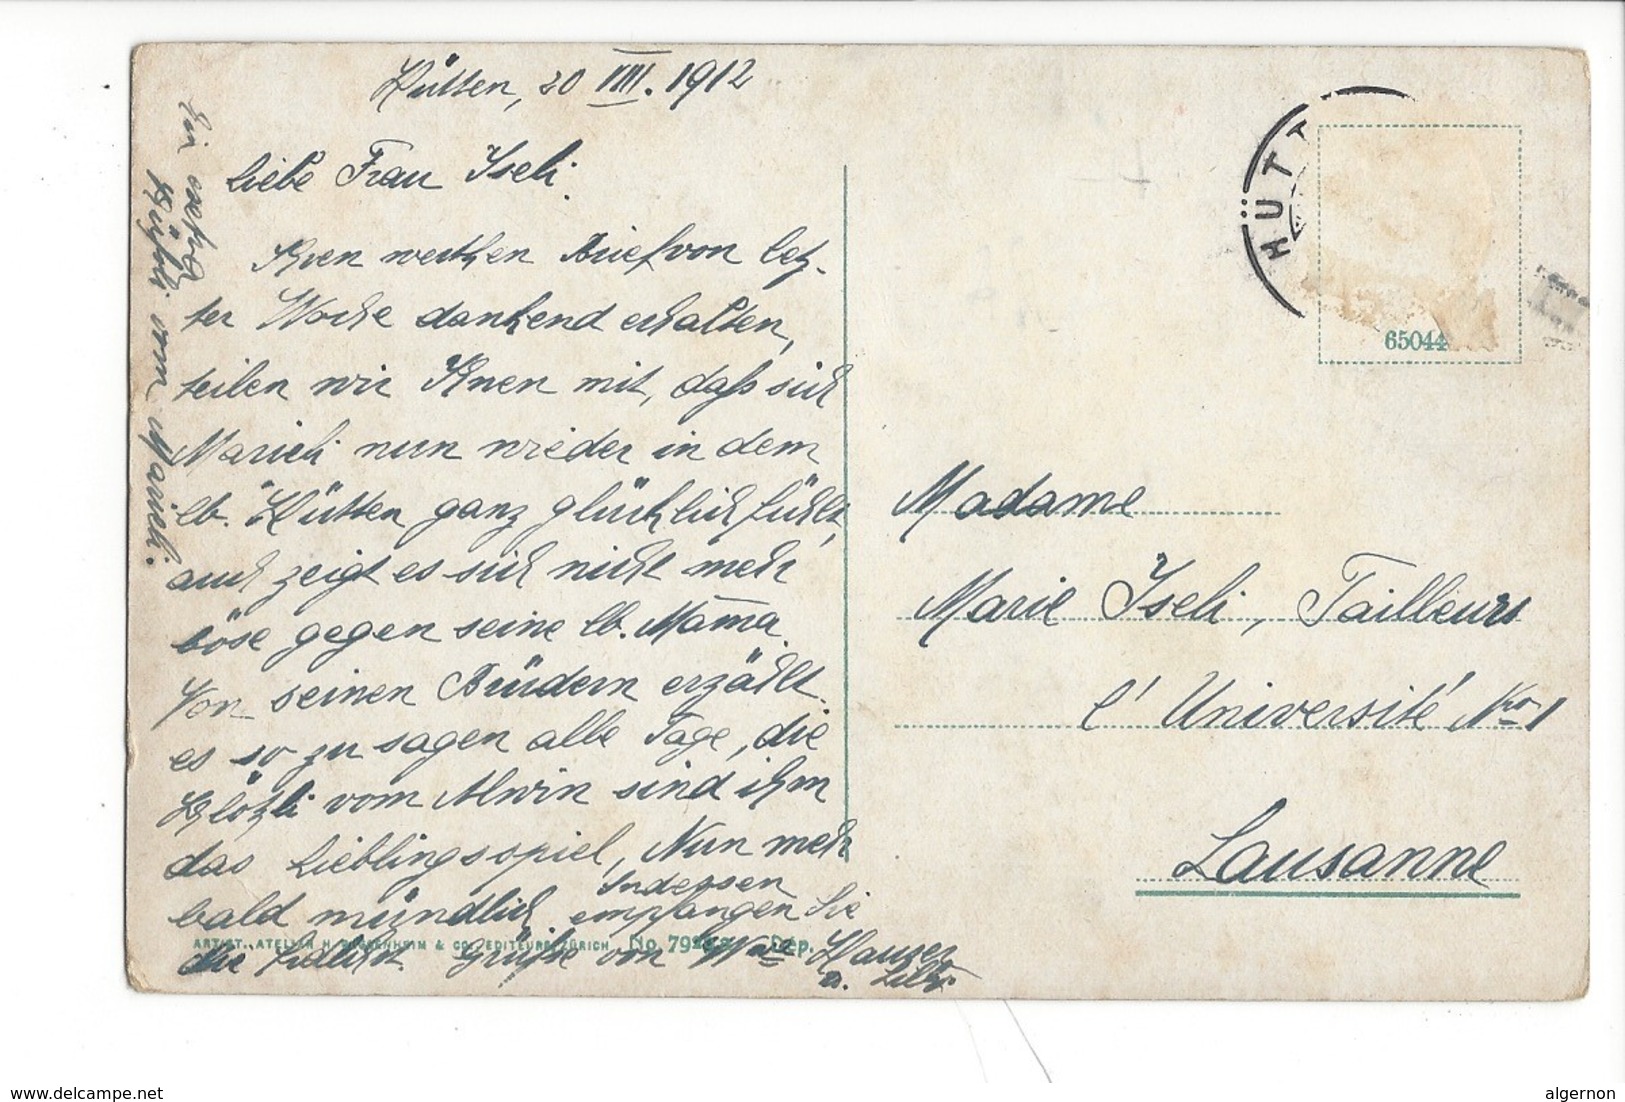 Hütten, 20 VIII. 1912
Liebe Frau Iseli.
Ihren werthen Brief von letz-
ter Woche dankend erhalten,
teilen wir Ihnen mit, daß sich
Marieli nun wieder in dem
lb. Hütten ganz glücklich fühlt,
auch zeigt es sich nicht mehr
böse gegen seine lb. Mama.
Von seinen Brüdern erzählt
es so zu sagen alle Tage, die
Klötzli vom Alwin sind ihm
das Lieblingsspiel, Nun mehr
bald mündlich. Indessen
empfangen Sie
die herzlichst. Grüße von Wwe Hauser
Ein extra
Küssli vom Marieli.
HÜTT
65044
Madame
Marie Iseli, Tailleurs
l'Université No 1
Lausanne
ARTIST. ATELIER H. GUGGENHEIM & CO., EDITEURS, ZÜRICH No. 79 Dép.
www.delcampe.net
algernon